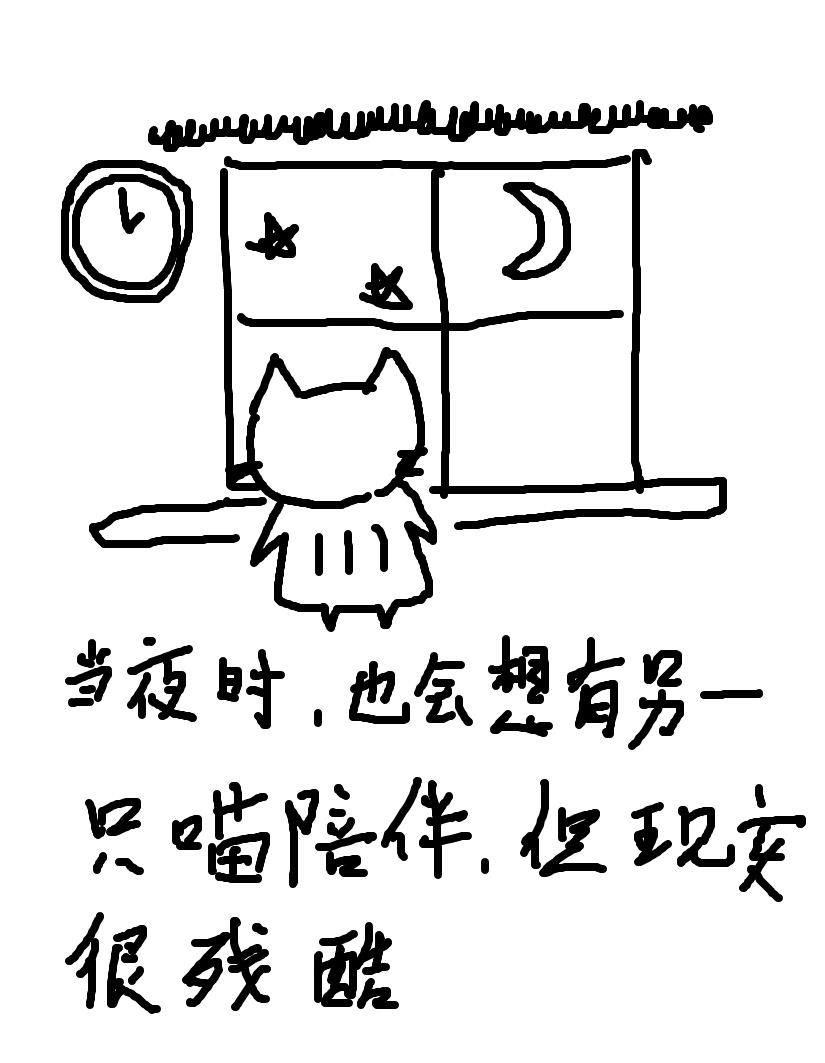 当夜时，也会想有另一
只喵陪伴，但现实
很残酷